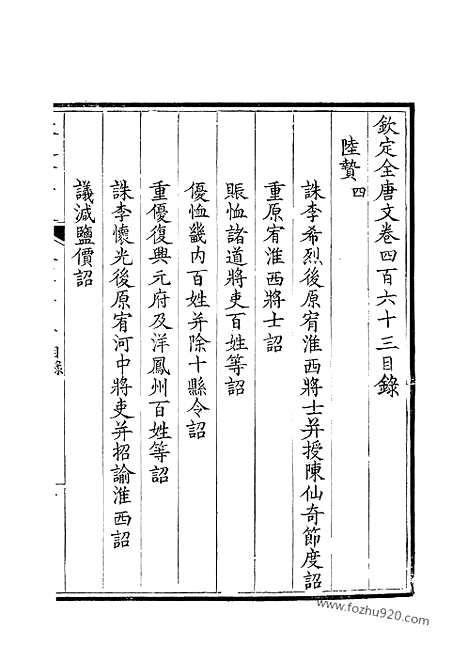 欽定全唐文卷四百六十三目錄
陸贄四
誅李希烈後原宥淮西將士并授陳仙奇節度詔
重原宥淮西將士詔
賑恤諸道將吏百姓等詔
優恤畿內百姓并除十縣令詔
重優復興元府及洋鳳州百姓等詔
誅李懷光後原宥河中將吏并招諭淮西詔
議減鹽價詔
目錄
www.fozhu920.com